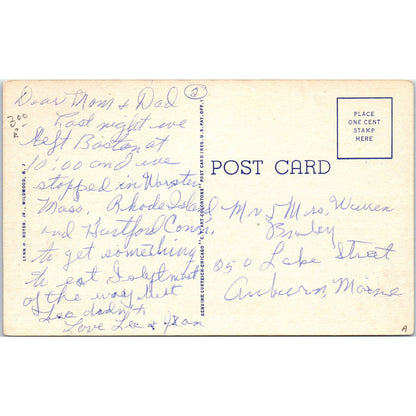 Dear Mom & Dad
2
300
Last night we
left Boston at
10:00 and we
stopped in Worster
Mass, Rhode Island
and Hartford Conn.
to get something
to eat I slept most
of the way but
Lee dadn't
Love Lee & Jean
LYNN H. BOYER, JR., WILDWOOD, N. J.
GENUINE CURTEICH-CHICAGO "C.T. ART-COLORTONE" POST CARD (REG. U.S. PAT. OFF.)
PLACE
ONE CENT
STAMP
HERE
POST CARD
Mr & Mrs. Warren
Lake Street
Auburn, Maine
A